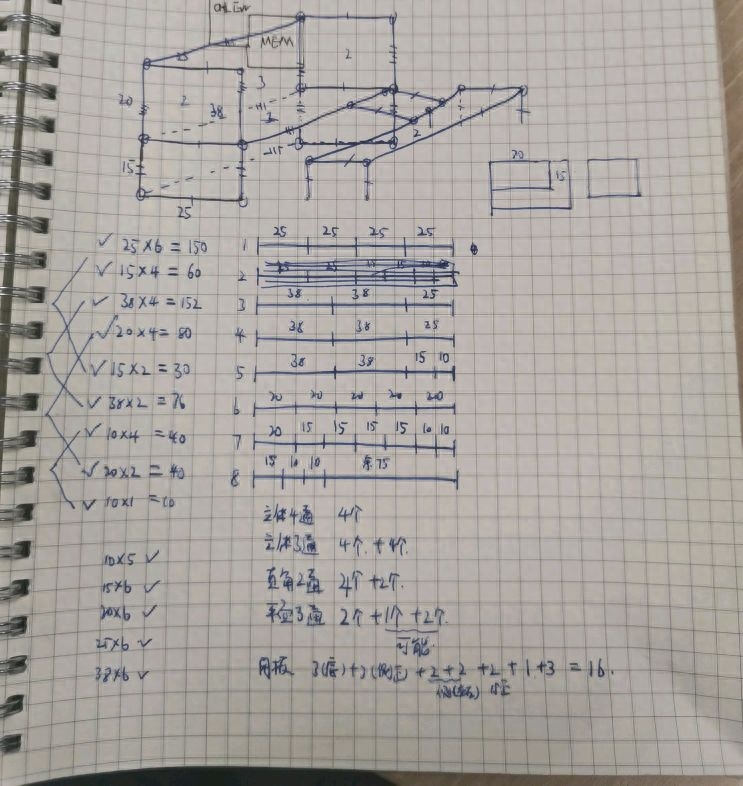 MEM
25
2
3
20
2
38
15
25
2
20
15
25×6=150
15×4=60
38×4=152
20×4=80
15×2=30
38×2=76
10×4=40
20×2=40
10×1=10
1 25 25 25 25
2
3 38 38 25
4 38 38 25
5 38 38 15 10
6 20 20 20 20 20
7 20 15 15 15 15 10 10
8 15 10 10 余75
立体4通 4个
立体3通 4个+4个
直角2通 4个+2个
平面3通 2个+1个+2个
可能
网板 3(底)+2(侧正)+2+2+2+1+3=16.
10×5
15×6
20×6
25×6
38×6